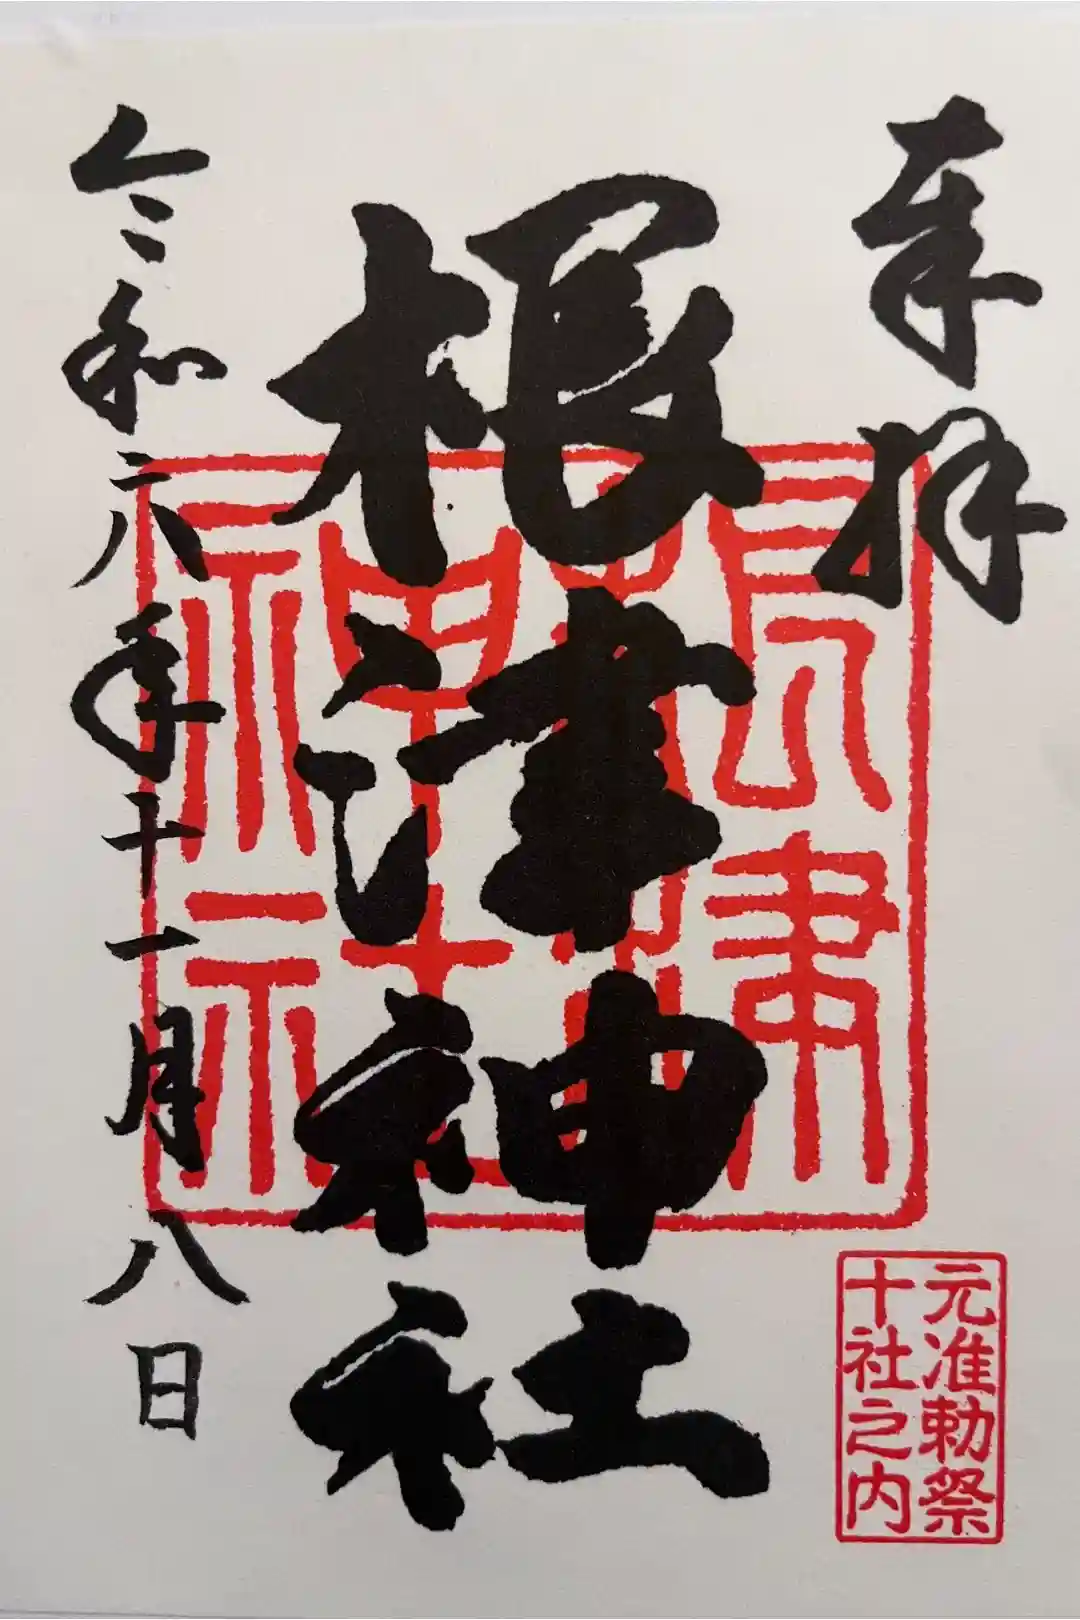 奉拝
根津神社
令和六年十一月八日
根津神社
元准勅祭
十社之内